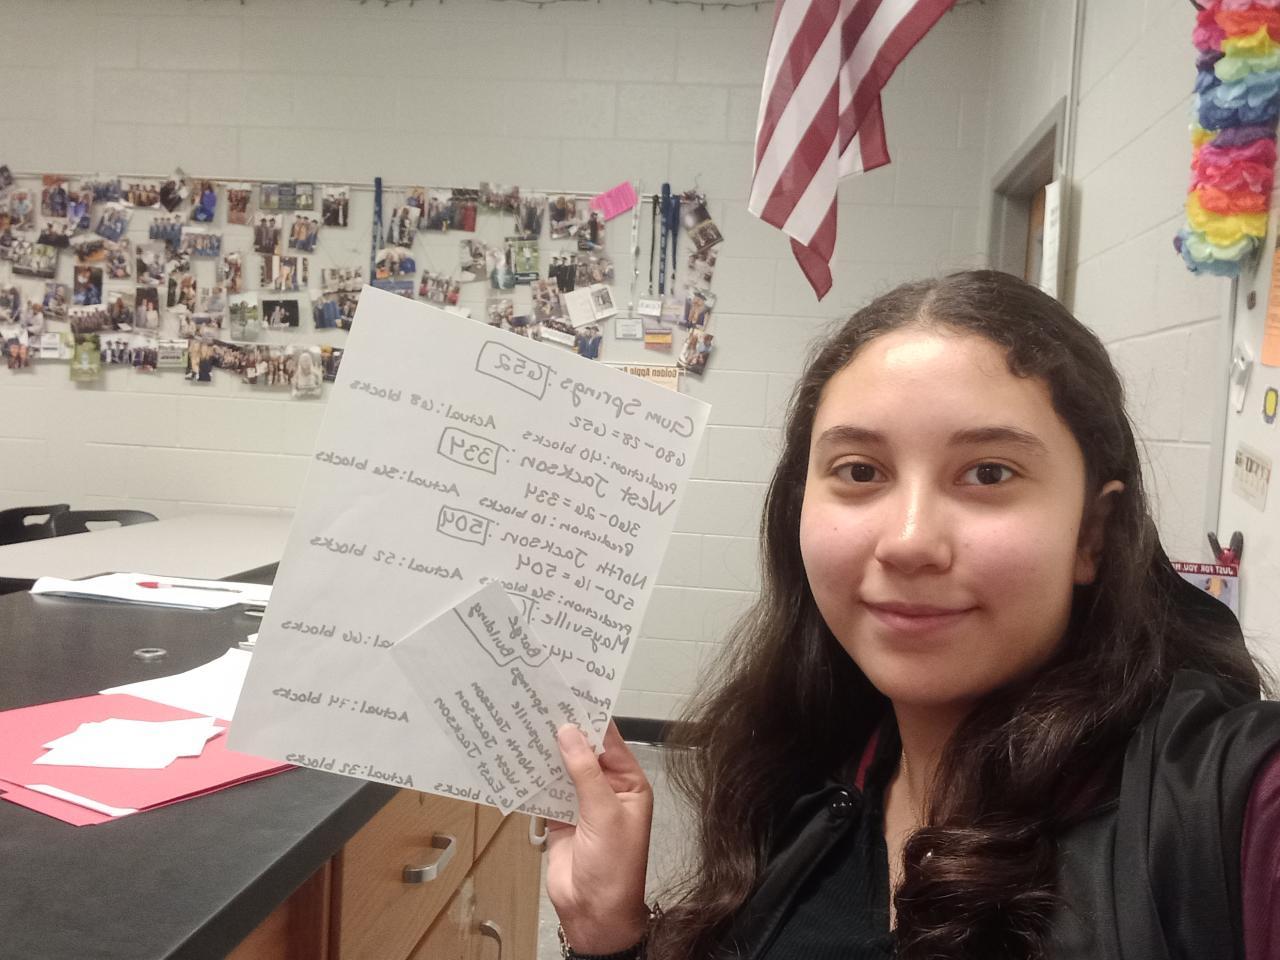 Gum Springs: 652
680-28=652
Prediction: 40 blocks Actual: 68 blocks
West Jackson: 334
360-26=334
Prediction: 10 blocks Actual: 36 blocks
North Jackson: 504
520-16=504
Prediction: 36 blocks Actual: 52 blocks
Maysville
660-44
Predic al: 66 blocks
Actual: 74 blocks
520
Predictio blocks Actual: 32 blocks
Barge
Building
Springs
3. Maysville
4. North Jackson
5. West Jackson
6. East Jackson
Golden Apple
JUST FOR YOU,